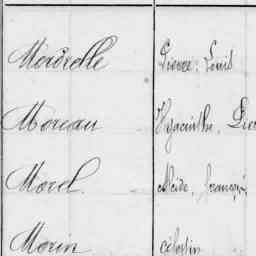 Mordrelle Pierre Louis
Moreau Hyacinthe, Pier
Morel Alcide, François
Morin Célestin